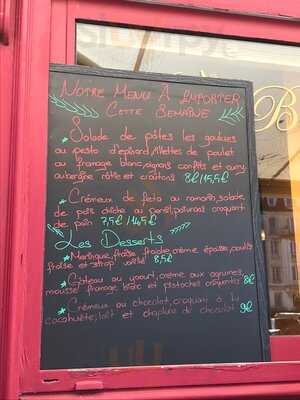 NOTRE MENU À EMPORTER
CETTE SEMAINE
* Salade de pâtes les gaudes
au pesto d'épinard, rillettes de poulet
au fromage blanc, oignons confits et curry,
aubergine rôtie et croûtons 8€/15,5€
* Crémeux de feta au romarin, salade
de pois chiche au persil, poivrons croquant
de pain 7,5€/14,5€
Les Desserts
* Meringue, fraise, fraise, crème épaisse, coulis
fraise et sirop 8,5€
* Gâteau au yaourt, crème aux agrumes,
mousse fromage blanc et pistaches croquantes 8€
* Crémeux au chocolat, croquant à la
cacahuète, lait et chapelure de chocolat 9€
B